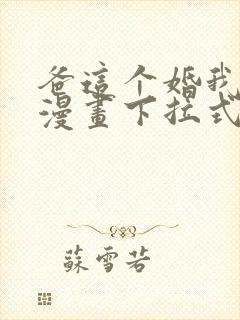 爸這个婚我
漫畫下拉式
蘇雪若